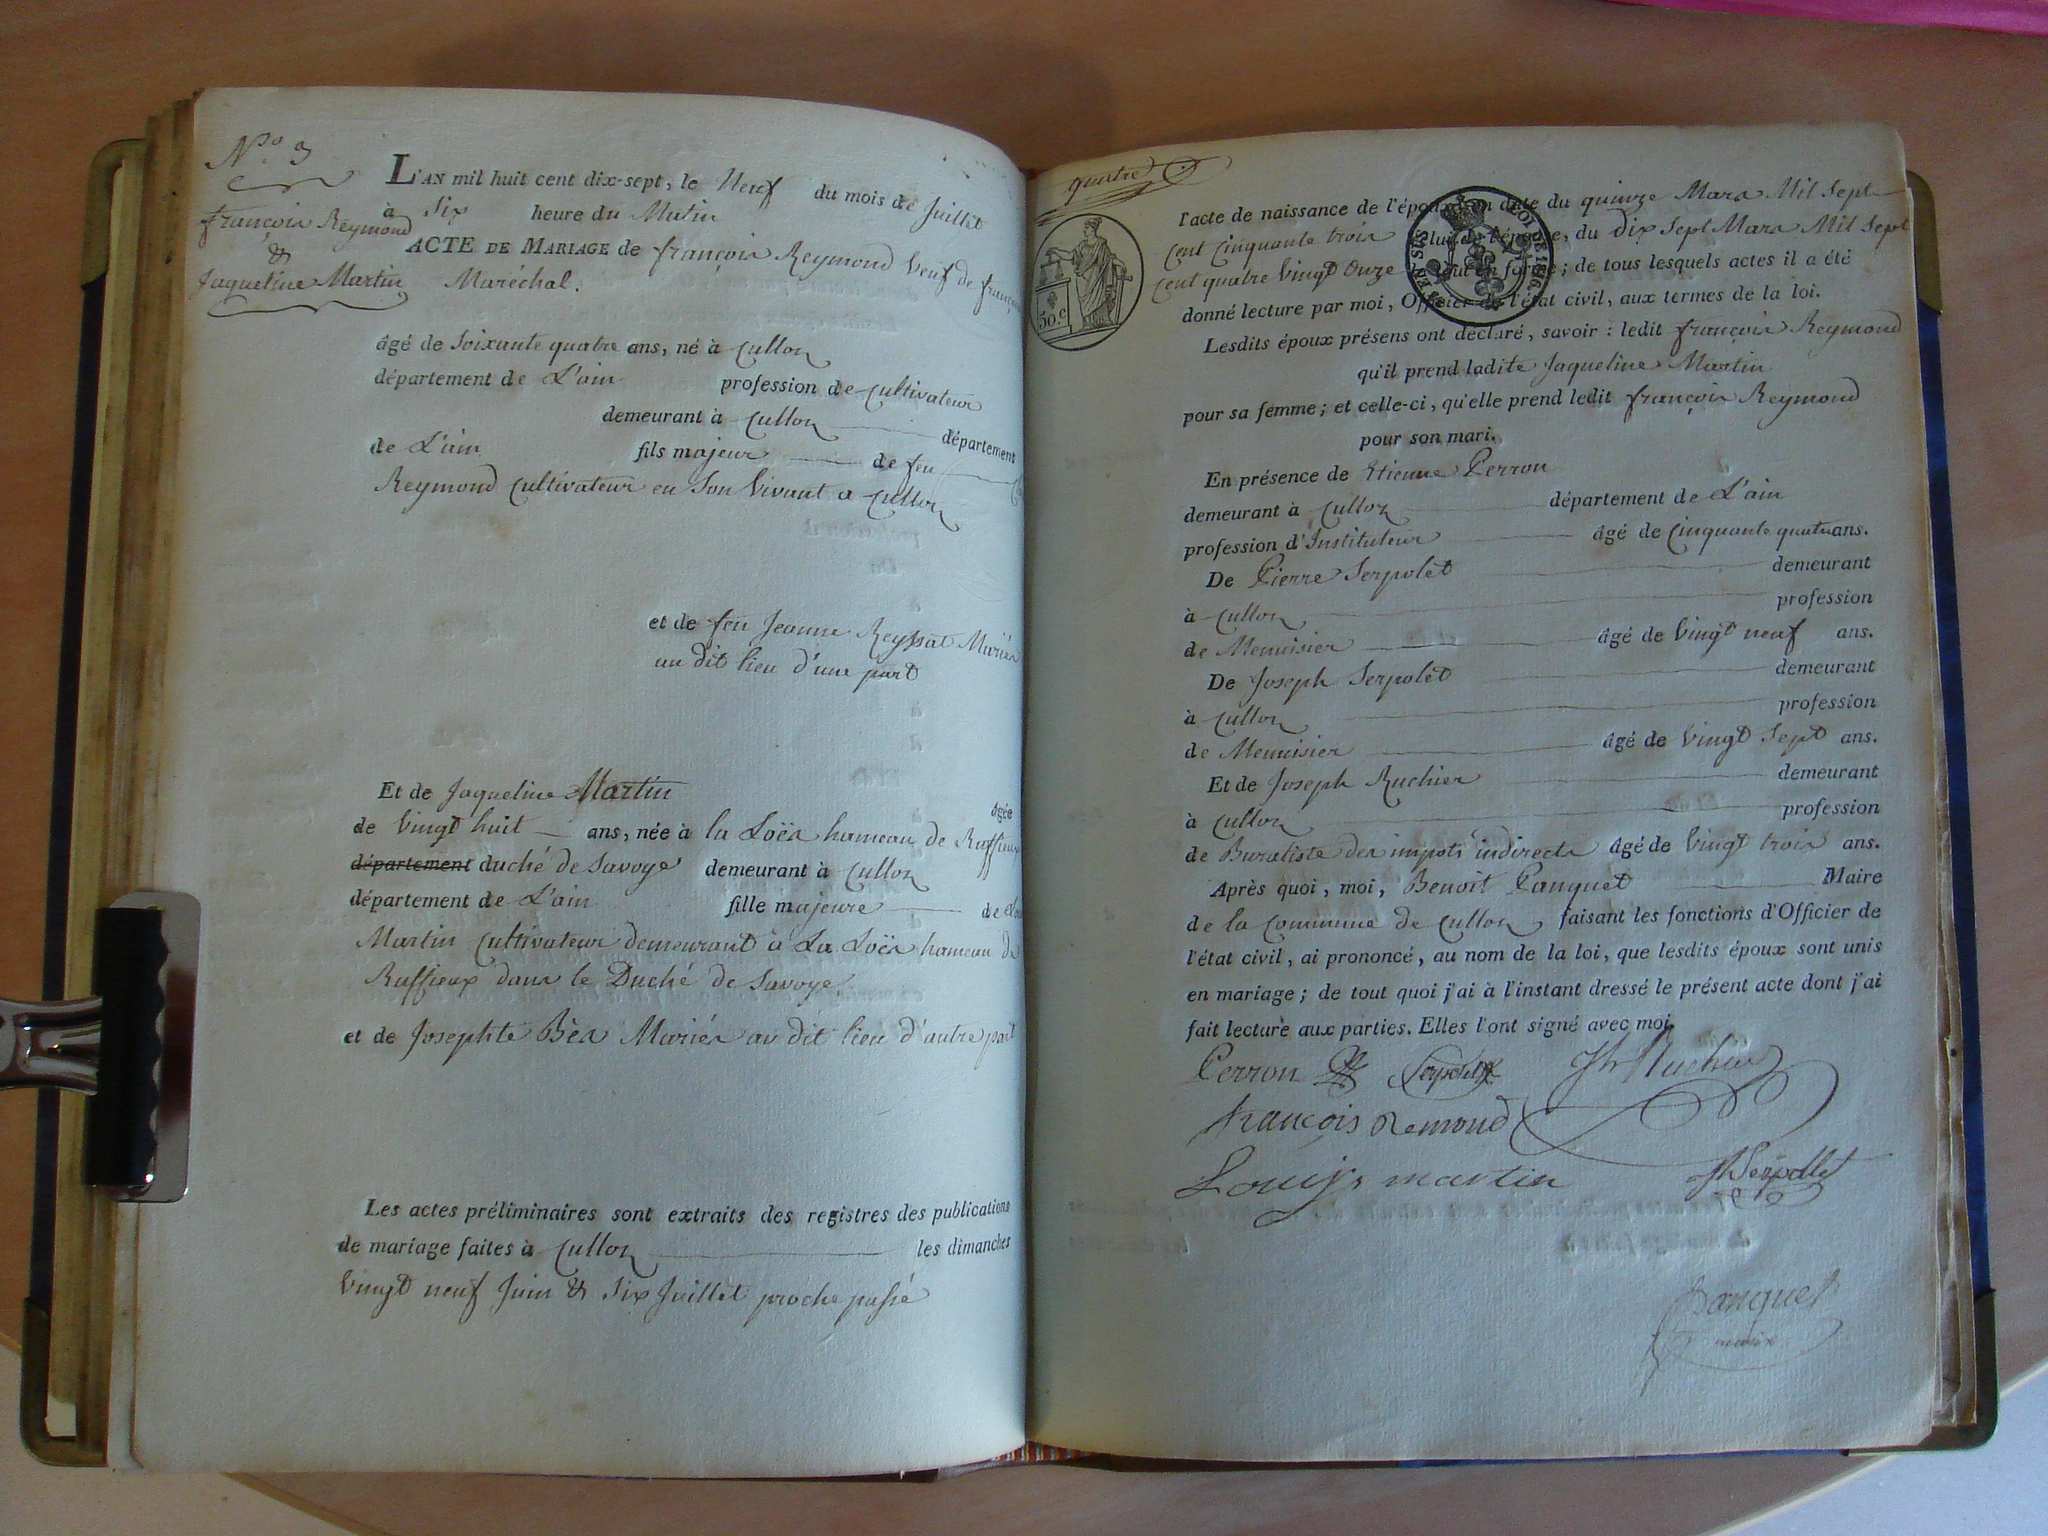 N.° 3
françois Reymond
&
Jaqueline Martin
L'AN mil huit cent dix-sept, le Neuf du mois de Juillet
à Six heure du Matin
ACTE DE MARIAGE de françois Reymond Veuf de
Maréchal.
âgé de Soixante quatre ans, né à Culloz
département de L'ain profession de Cultivateur
demeurant à Culloz département
de L'ain fils majeur de feu
Reymond Cultivateur en Son Vivant a Culloz
et de feu Jeanne Reyssat Mariés
au dit lieu d'une part
Et de Jaqueline Martin âgée
de Vingt huit ans, née à la Loës hameau de Ruffieux
département duché de Savoye demeurant à Culloz
département de L'ain fille majeure de
Martin Cultivateur demeurant à La Loës hameau de
Ruffieux dans le Duché de Savoye
et de Josephte Bès Mariés au dit lieu d'autre part
Les actes préliminaires sont extraits des registres des publications
de mariage faites à Culloz les dimanches
Vingt neuf Juin & Six Juillet proche passé
quatre
50.c
LOI DE 1816
l'acte de naissance de l'époux en date du quinze Mars Mil Sept
Cent Cinquante trois celui de l'épouse, du dix Sept Mars Mil Sept
Cent quatre Vingt Onze le tout en forme; de tous lesquels actes il a été
donné lecture par moi, Officier de l'état civil, aux termes de la loi.
Lesdits époux présens ont déclaré, savoir : ledit françois Reymond
qu'il prend ladite Jaqueline Martin
pour sa femme; et celle-ci, qu'elle prend ledit françois Reymond
pour son mari.
En présence de Etienne Perron
demeurant à Culloz département de L'ain
profession d'Instituteur âgé de Cinquante quatre ans.
De Pierre Serpolet demeurant
à Culloz profession
de Menuisier âgé de Vingt neuf ans.
De Joseph Serpolet demeurant
à Culloz profession
de Menuisier âgé de Vingt Sept ans.
Et de Joseph Ruchier demeurant
à Culloz profession
de Buraliste des impots indirects âgé de Vingt trois ans.
Après quoi, moi, Benoit Panquet Maire
de la Commune de Culloz faisant les fonctions d'Officier de
l'état civil, ai prononcé, au nom de la loi, que lesdits époux sont unis
en mariage; de tout quoi j'ai à l'instant dressé le présent acte dont j'ai
fait lecture aux parties. Elles l'ont signé avec moi.
Perron Serpolet Jh Ruchier
françois Remond
Louis martin Jh Serpollet
Panquet
maire